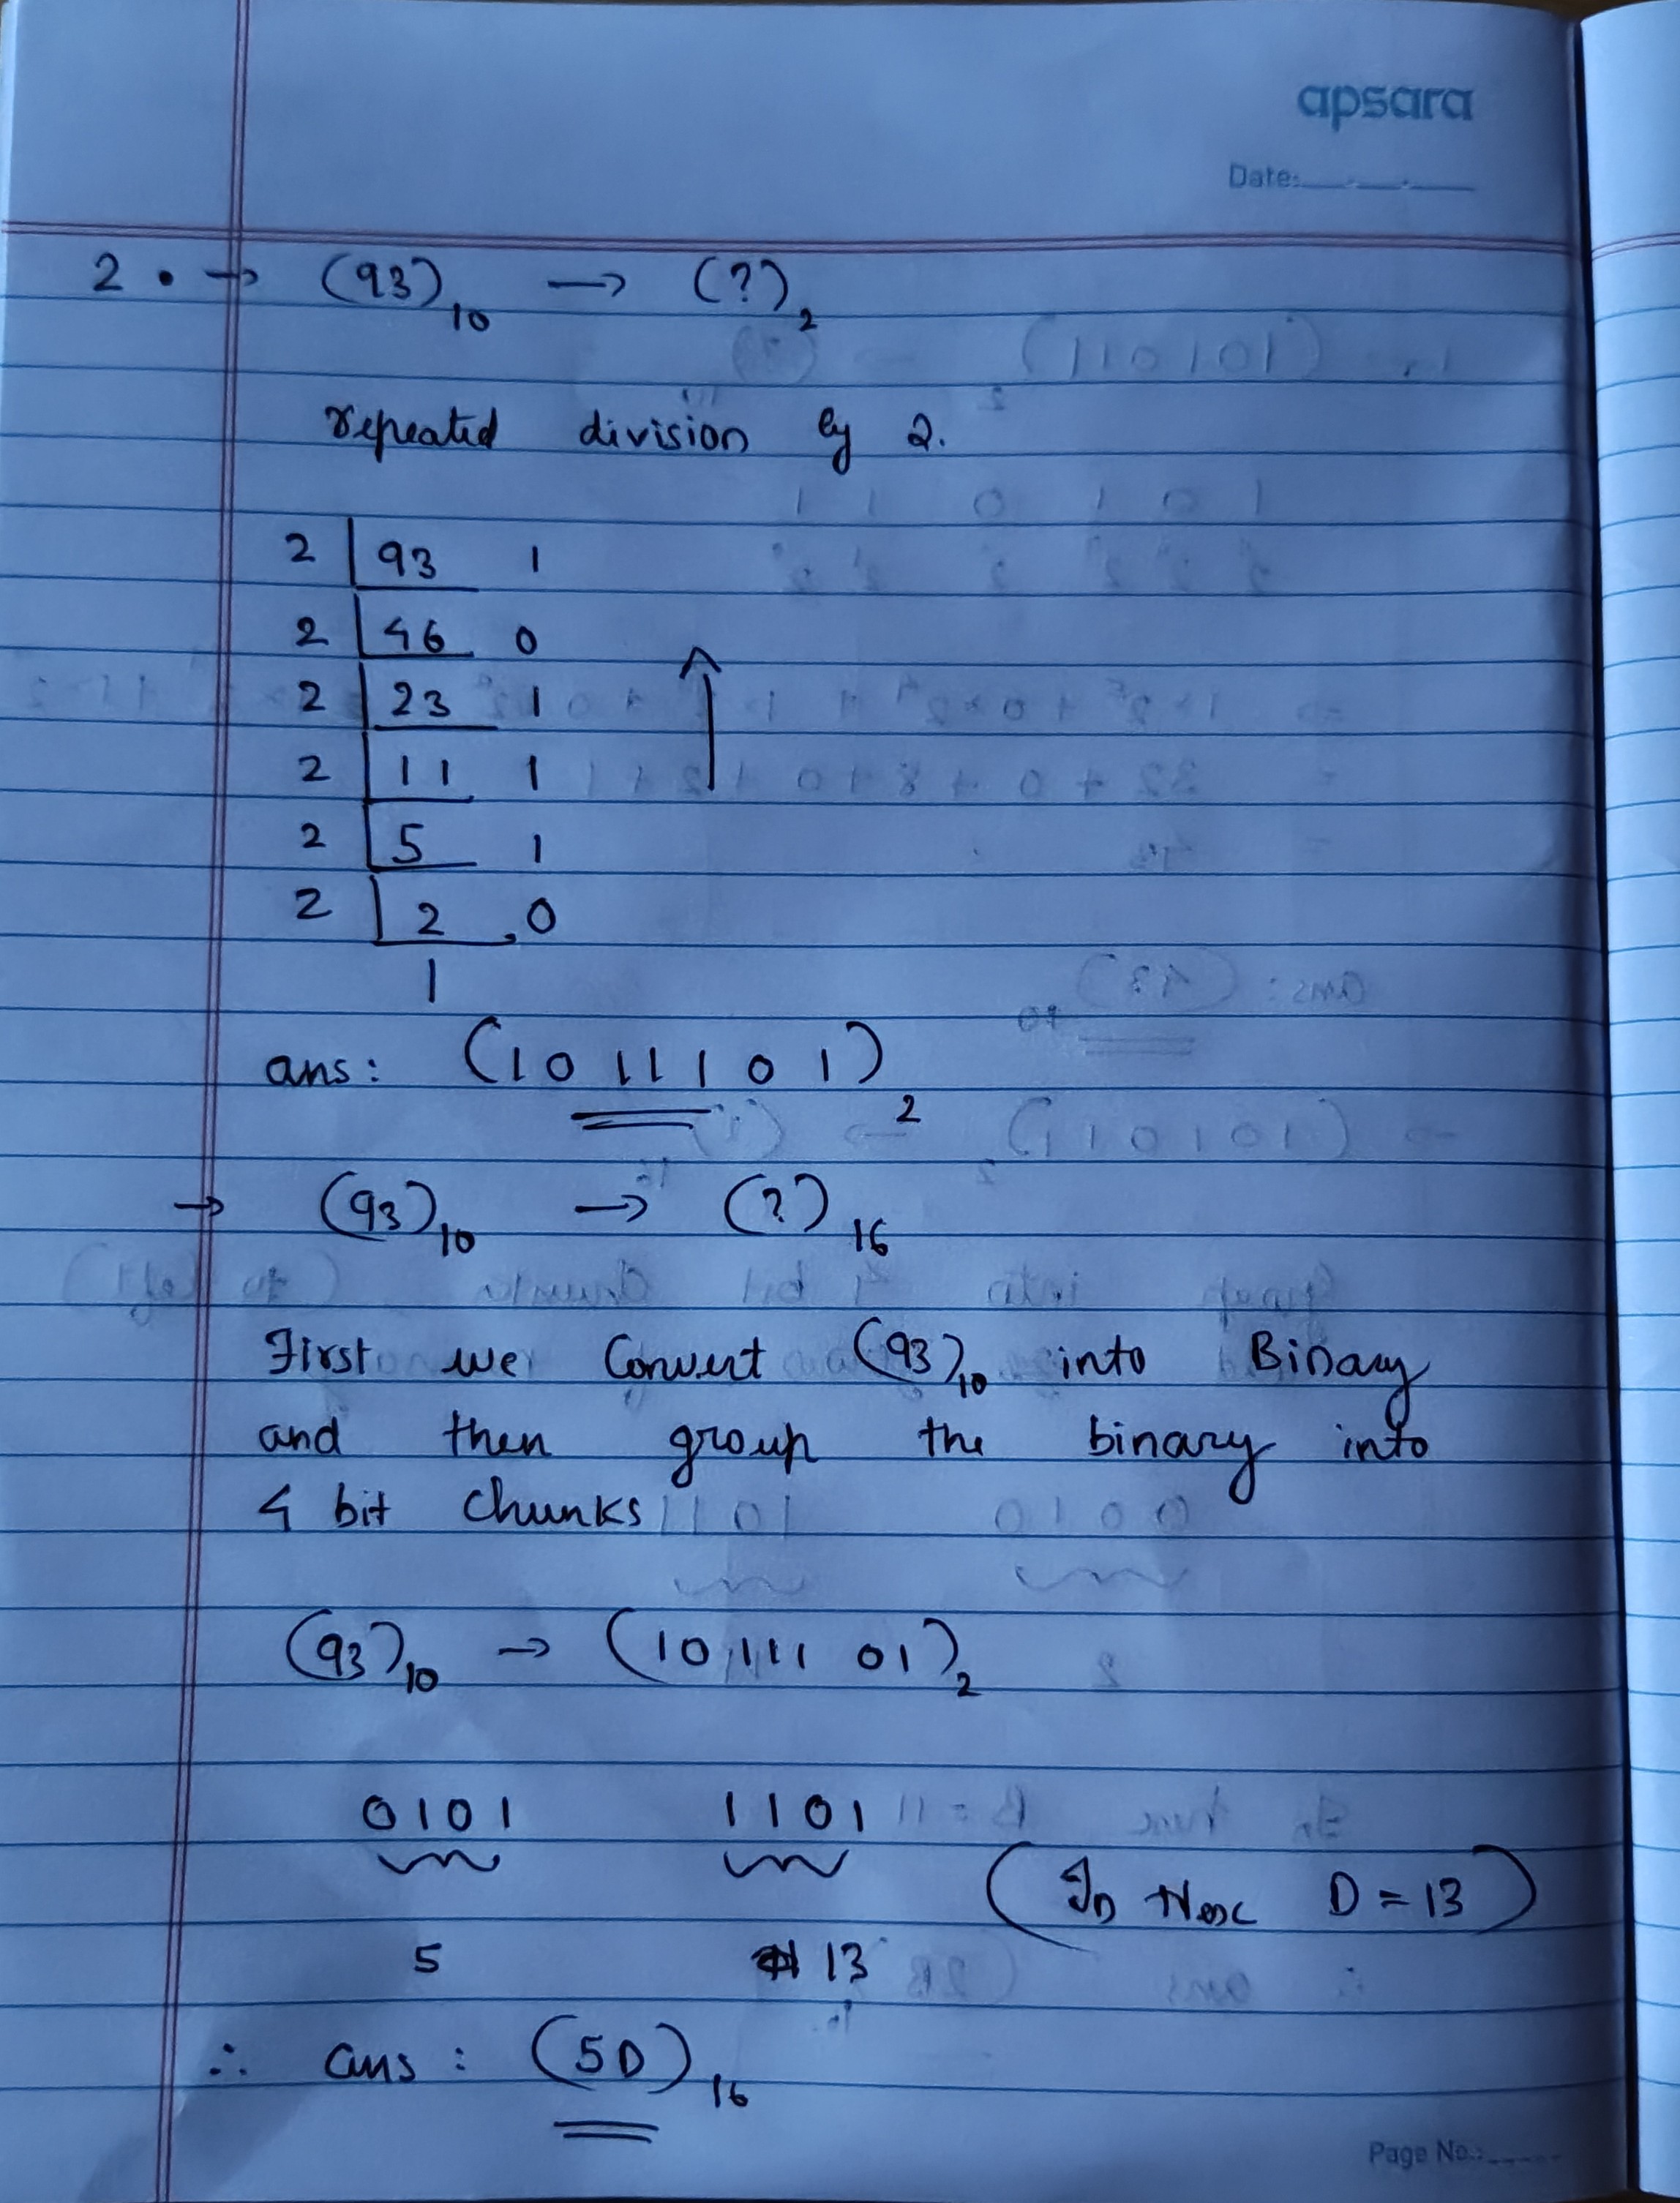 apsara
Date:
2 • → (93)₁₀ → (?)₂
repeated division by 2.
2 | 93 1
2 | 46 0
2 | 23 1
2 | 11 1
2 | 5 1
2 | 2 0
1
ans: (1011101)₂
→ (93)₁₀ → (?)₁₆
First we Convert (93)₁₀ into Binary
and then group the binary into
4 bit Chunks
(93)₁₀ → (1011101)₂
0101 1101
(In Hex D = 13)
5 13
∴ ans : (5D)₁₆
Page No.: